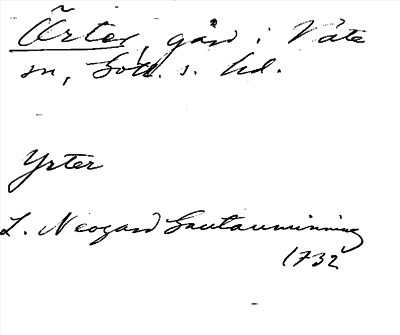 Ärter, gård i Väte
sn, Gotl. s. hd.
Yrter
L. Neogard Gautauminning
1732